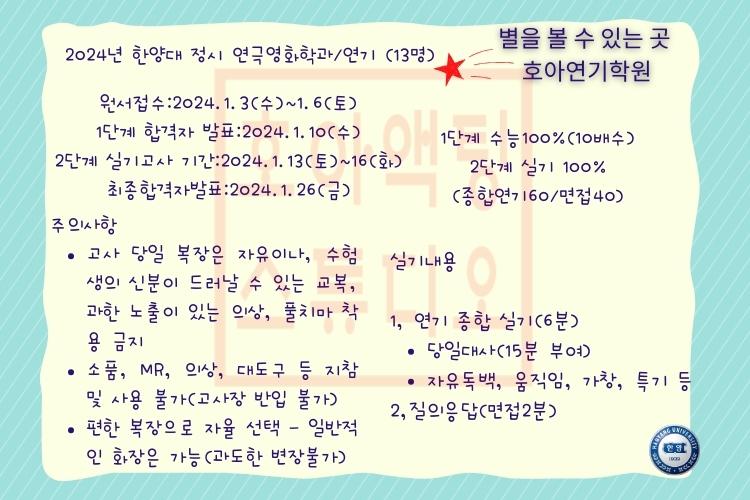 별을 볼 수 있는 곳
호아연기학원
2024년 한양대 정시 연극영화학과/연기 (13명)
원서접수:2024.1.3(수)~1.6(토)
1단계 합격자 발표:2024.1.10(수)
2단계 실기고사 기간:2024.1.13(토)~16(화)
최종합격자발표:2024.1.26(금)
1단계 수능100%(10배수)
2단계 실기 100%
(종합연기60/면접40)
주의사항
• 고사 당일 복장은 자유이나, 수험
생의 신분이 드러날 수 있는 교복,
과한 노출이 있는 의상, 풀치마 착
용 금지
• 소품, MR, 의상, 대도구 등 지참
및 사용 불가(고사장 반입 불가)
• 편한 복장으로 자율 선택 - 일반적
인 화장은 가능(과도한 변장불가)
실기내용
1, 연기 종합 실기(6분)
• 당일대사(15분 부여)
• 자유독백, 움직임, 가창, 특기 등
2,질의응답(면접2분)
호아액팅
스튜디오
HANYANG UNIVERSITY
한양
1939